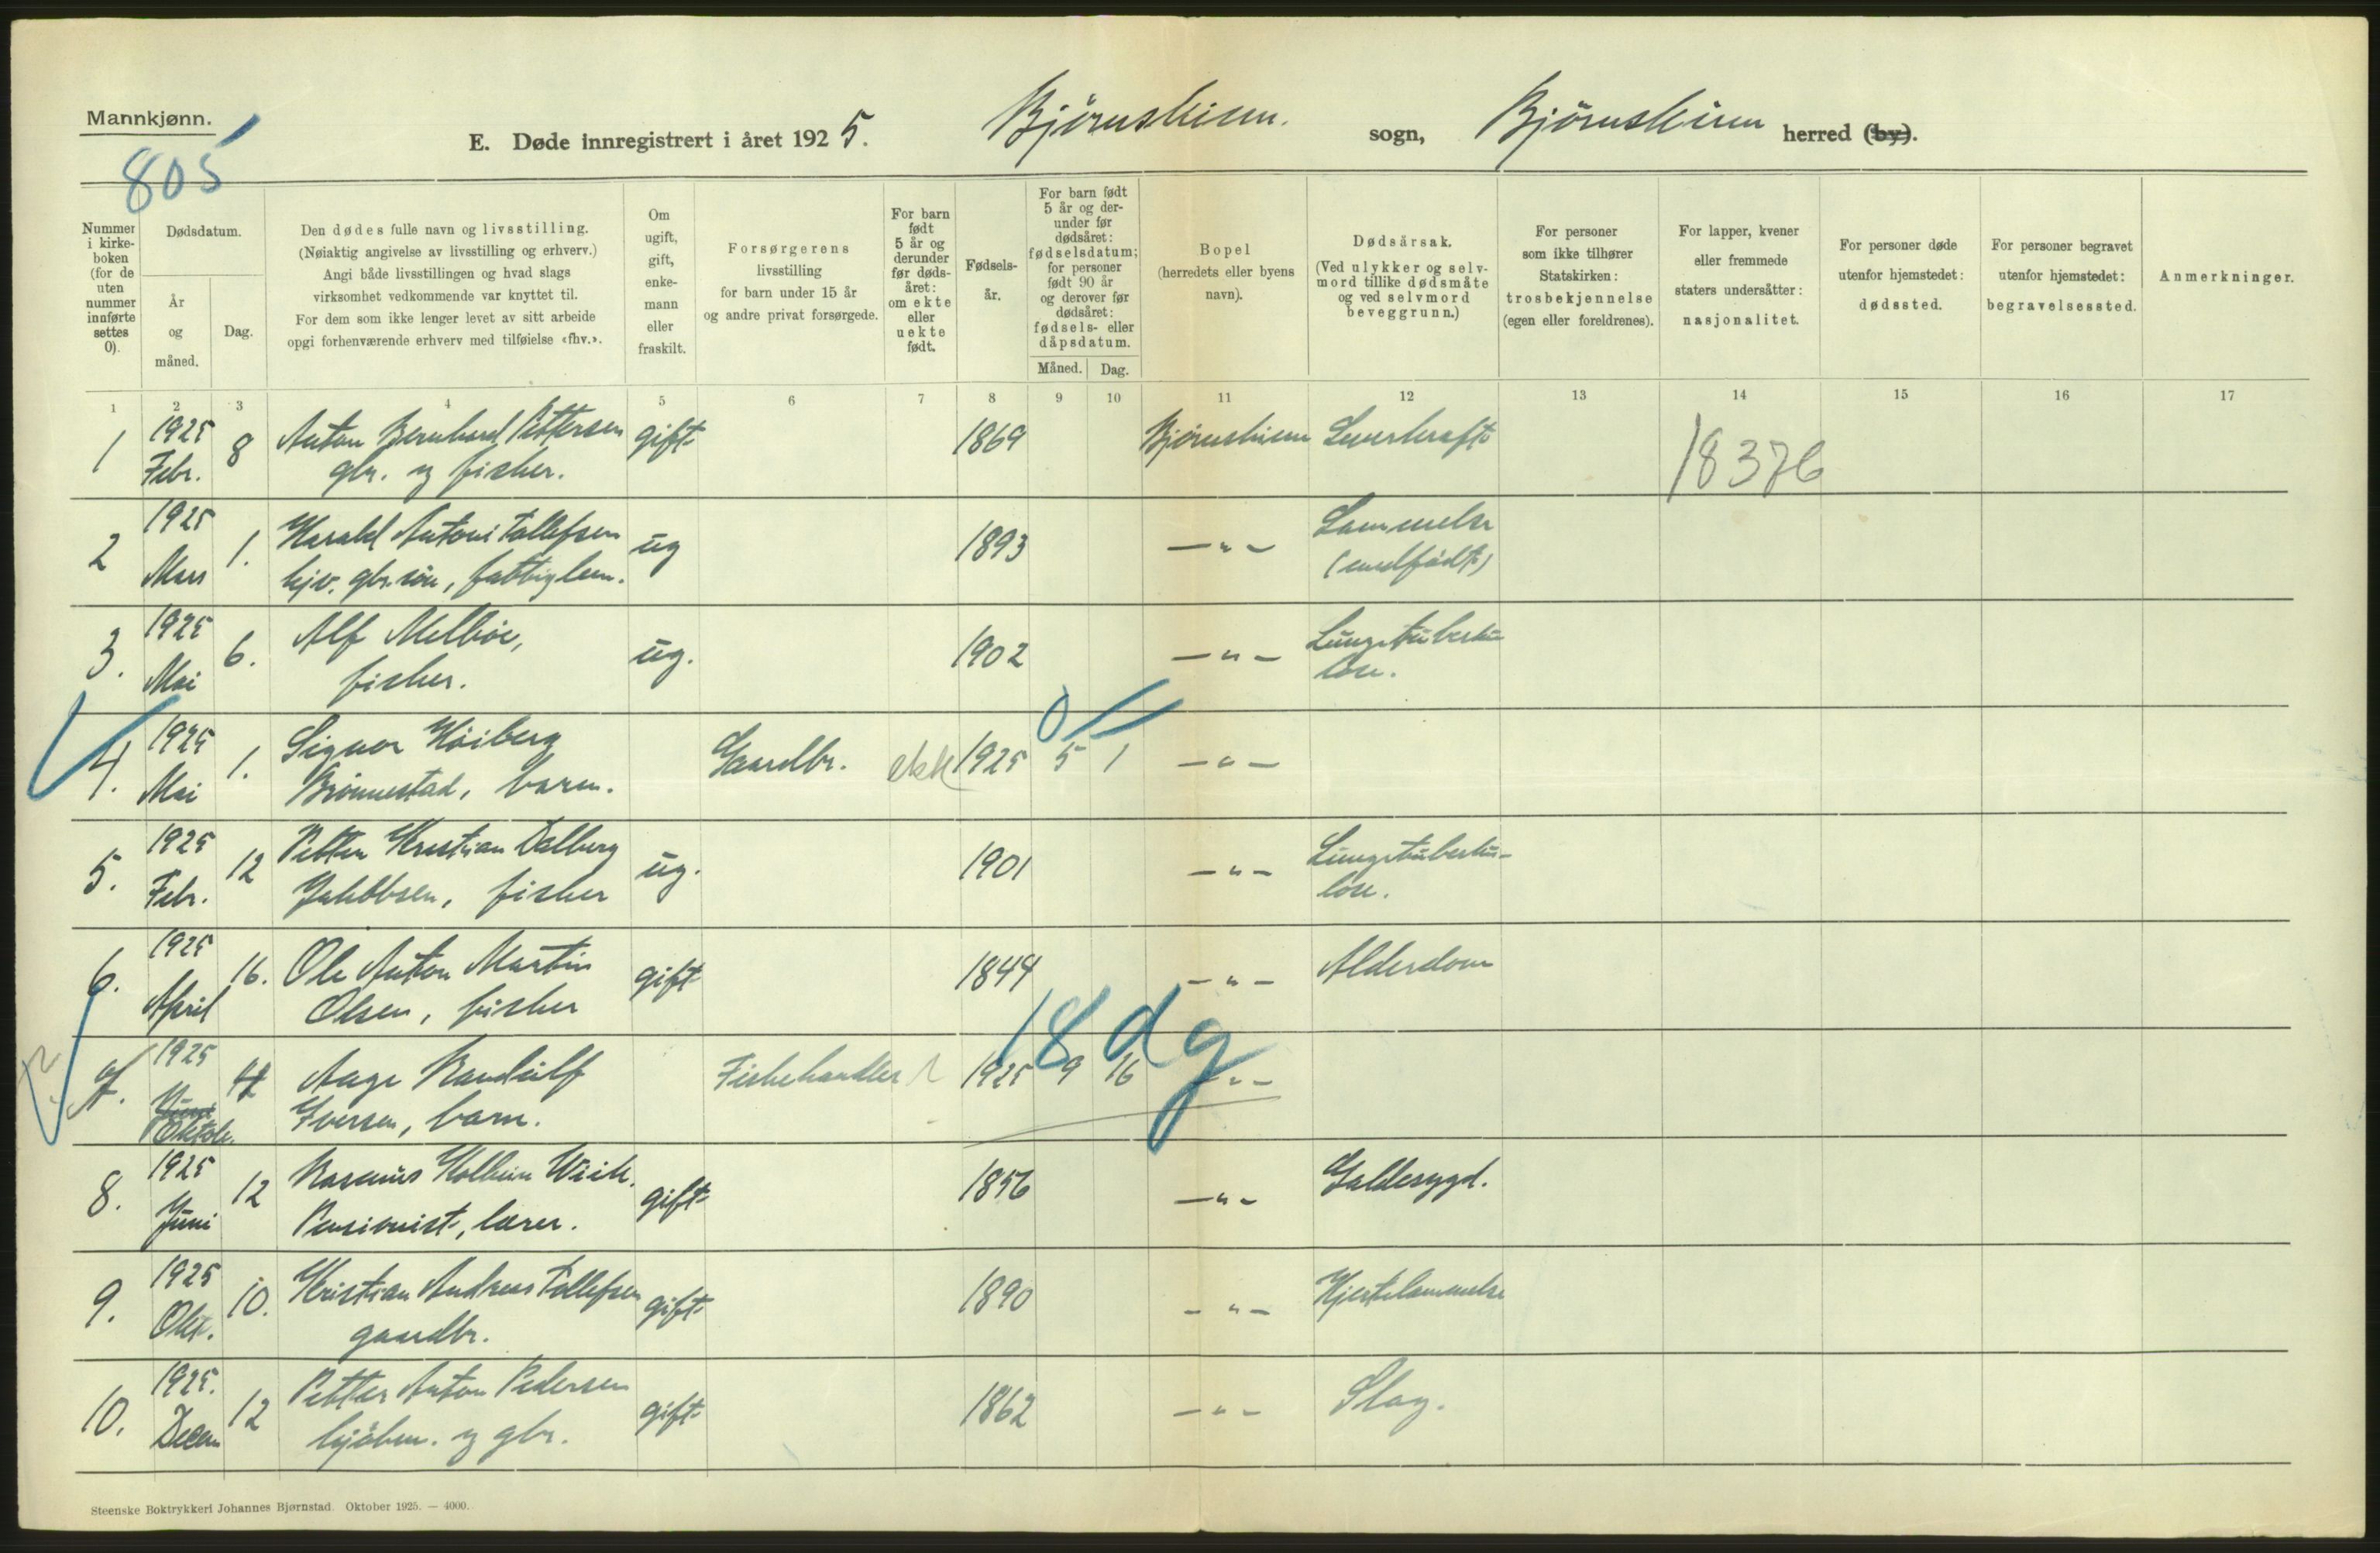 Mannkjønn.
805
E. Døde innregistrert i året 1925. Bjørnskinn. sogn, Bjørnskinn herred (by).
Nummer i kirkeboken (for de uten nummer innførte settes 0).
Dødsdatum.
År og måned.
Dag.
Den dødes fulle navn og livsstilling.
(Nøiaktig angivelse av livsstilling og erhverv.)
Angi både livsstillingen og hvad slags
virksomhet vedkommende var knyttet til.
For dem som ikke lenger levet av sitt arbeide
opgi forhenværende erhverv med tilføielse «fhv.».
Om ugift, gift, enkemann eller fraskilt.
Forsørgerens
livsstilling
for barn under 15 år
og andre privat forsørgede.
For barn født 5 år og derunder før dødsåret: om ekte eller uekte født.
Fødselsår.
For barn født 5 år og derunder før dødsåret: fødselsdatum; for personer født 90 år og derover før dødsåret: fødsels- eller dåpsdatum.
Måned. Dag.
Bopel
(herredets eller byens
navn).
Dødsårsak.
(Ved ulykker og selvmord tillike dødsmåte og ved selvmord beveggrunn.)
For personer
som ikke tilhører
Statskirken:
trosbekjennelse
(egen eller foreldrenes).
For lapper, kvener
eller fremmede
staters undersåtter:
nasjonalitet.
For personer døde
utenfor hjemstedet:
dødssted.
For personer begravet
utenfor hjemstedet:
begravelsessted.
Anmerkninger.
1 2 3 4 5 6 7 8 9 10 11 12 13 14 15 16 17
1 1925 Febr. 8 Anton Bernhard Pettersen gift 1869 Bjørnskinn Leverkræft
gbr. og fisker.
18376
2 1925 Mars 1. Harald Antoni Tollefsen ug 1893 — " — Lammelse
hjv. gbr.søn, fattiglem. (medfødt)
3. 1925 Mai 6. Alf Melbøe, ug. 1902 — " — Lungetuberku-
fisker. lose.
0 //
4. 1925 Mai 1. Signor Høiberg Gaardbr. ekte 1925 5 1 — " —
Brønnestad, barn.
5. 1925 Febr. 12 Petter Kristian Dalberg ug. 1901 — " — Lungetuberku-
Jakobsen, fisker lose.
6. 1925 April 16. Ole Anton Martin gift 1844 — " — Alderdom
Olsen, fisker
18 dg
7. 1925 Juni Oktob. 4 Aage Randulf Fiskehandler 1925 9 16 — " —
Iversen, barn.
8. 1925 Juni 12 Rasmus Kolbein Wiik. gift 1856 — " — Galdesygd.
Pensionist, lærer.
9. 1925 Okt. 10. Kristian Andreas Tollefsen gift 1890 — " — Hjertelammelse
gaardbr.
10. 1925. Decem 12 Petter Anton Pedersen gift 1862 — " — Slag.
kjøbm. og gbr.
Steenske Boktrykkeri Johannes Bjørnstad. Oktober 1925. — 4000.